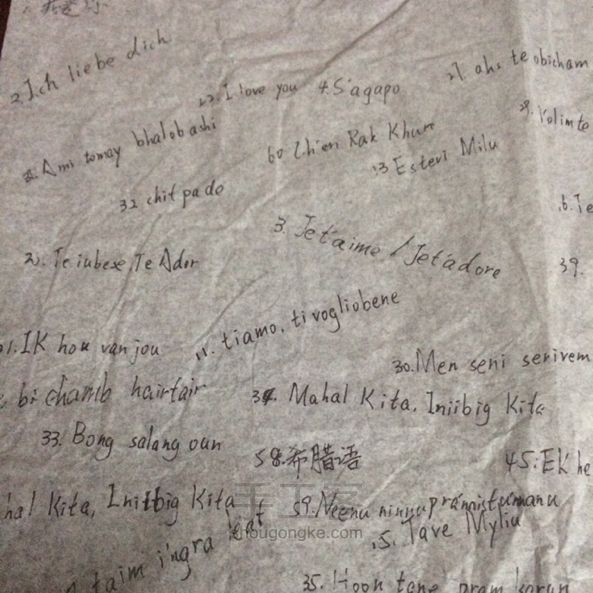 2. Ich liebe dich
23. I love you
4. S'agapo
27. ahs te obicham
Volim te
Ami tomay bhalobashi
60 Ch'en Rak Khun
13 Estevi Milu
32 chit pa de
3. Je t'aime / Je t'adore
Te iubexe, Te Ador
39.
IK hou van jou
11. tiamo, ti vogliobene
30. Men seni serivem
bi chamb hairtair
Mahal Kita, Iniibig Kita
33. Bong salang oun
58. 希腊语
45. EK he
hal Kita, Iniibig Kita
59. Neenu ninnu
15. Tave Myliu
taim i'ngra leat
35. Hoon tane pram karun
shougongke.com